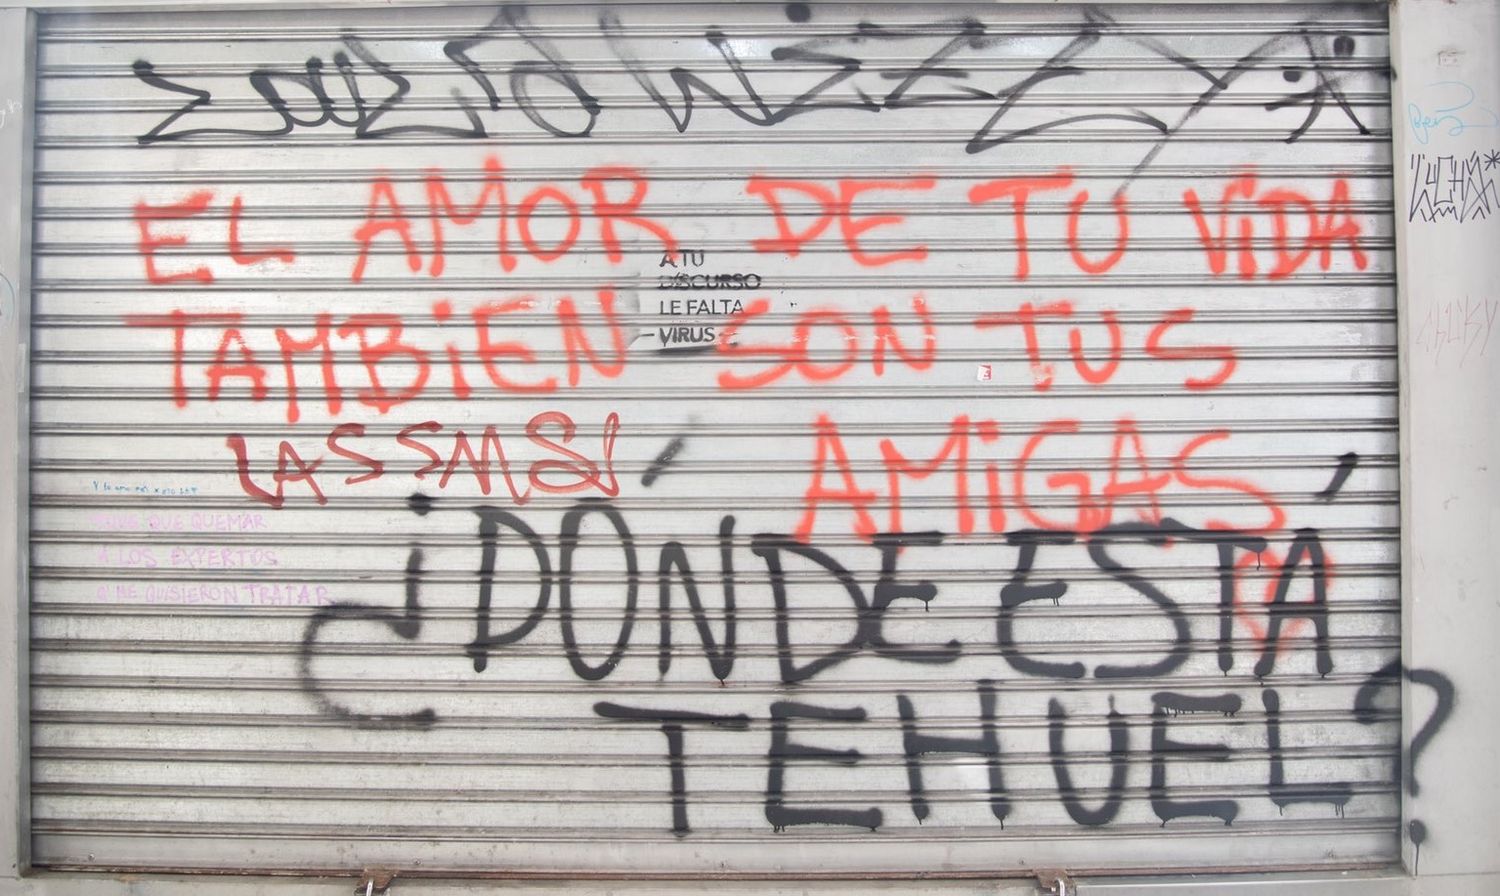 EL AMOR DE TU ViDA
A TU
DISCURSO
LE FALTA
- VIRUS -
TAMBiEN SON TUS
AMiGAS
QUE QUEMAR
A LOS EXPERTOS
Q ME QUISIERON TRATAR
¿DÓNDE ESTÁ
TEHUEL?
LUCHA*